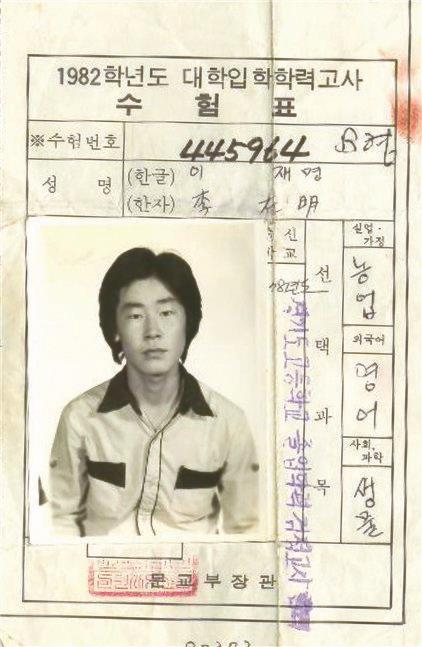 1982학년도 대학입학학력고사
수험표
※수험번호 445964
성명 (한글) 이 재명
(한자) 李 在 明
신
교
82년도
선택과목
실업·가정
농업
외국어
영어
사회, 과학
생물
경기도고등학교 졸업학력검정고시
문교부장관